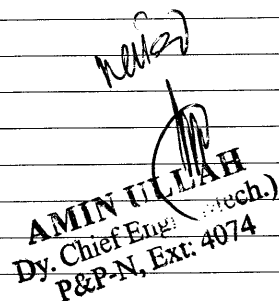 AMIN ULLAH
Dy. Chief Eng (Mech.)
P&P-N, Ext: 4074